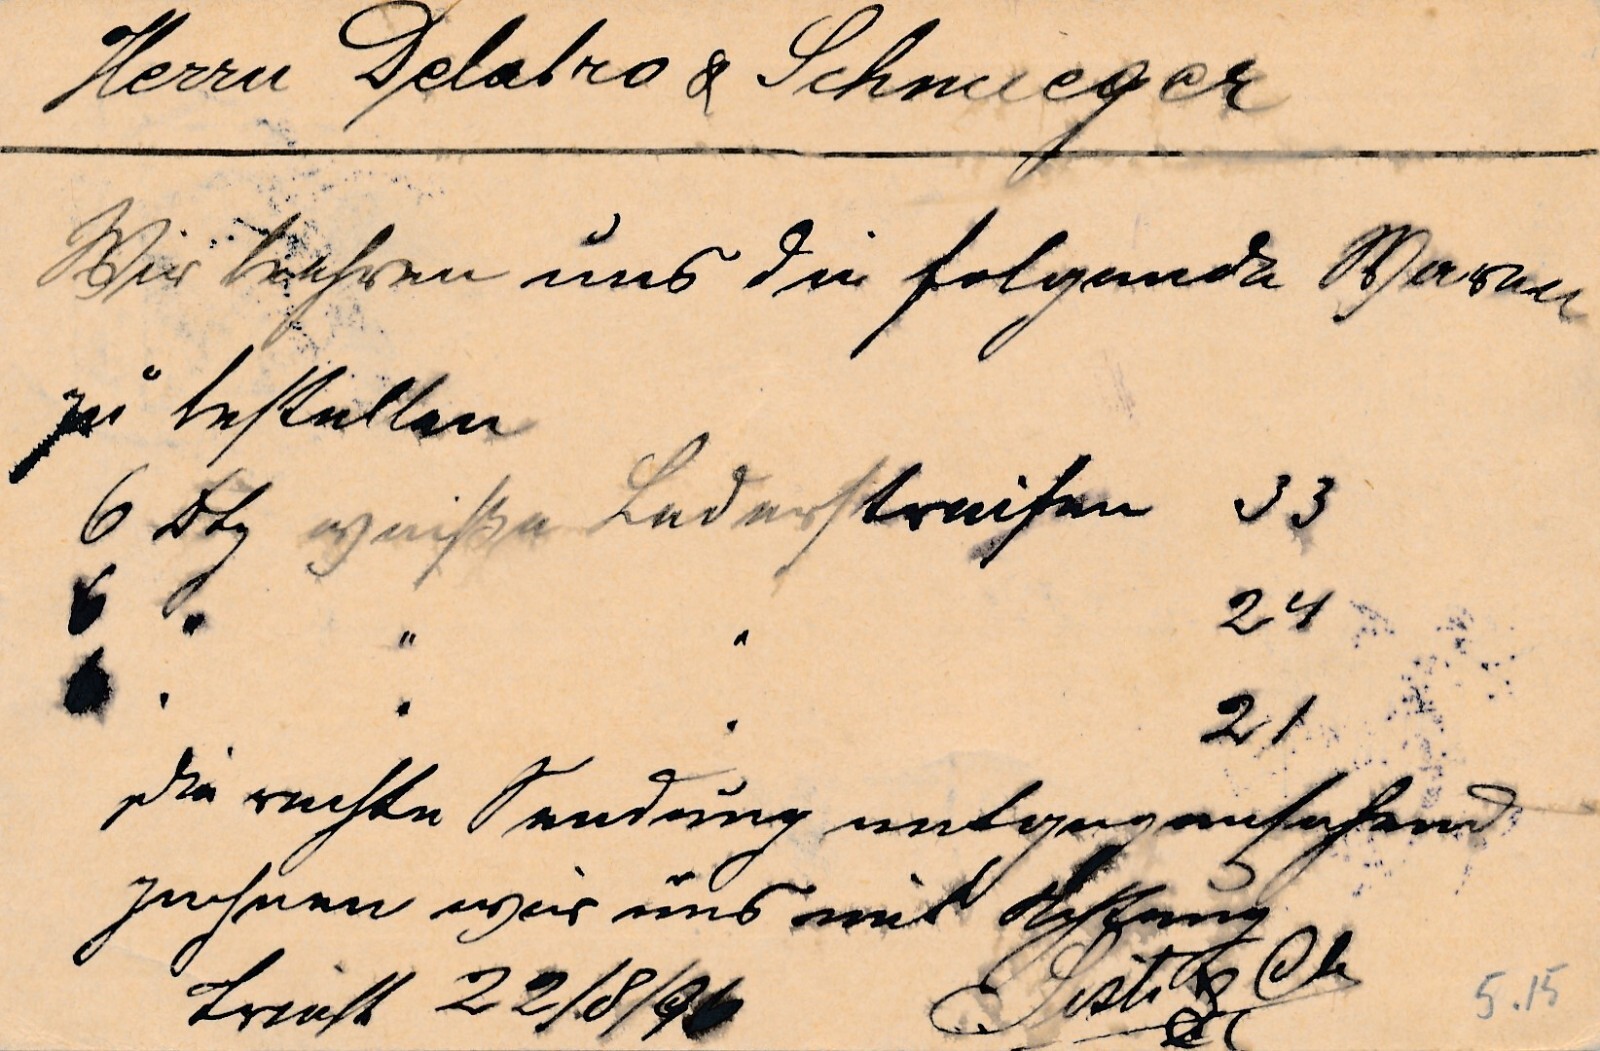 Herrn Delabro & Schmieger
Wir beehren uns die folgende Waren
zu bestellen
6 Dtz weiße Lederstreifen 33
6 " " " 24
6 " " " 21
die rechte Sendung entgegensehend
zeichnen wir uns mit Achtung
Triest 22/8/96
5.15